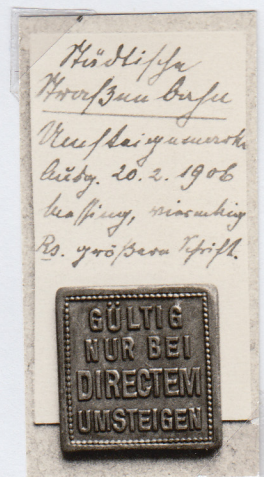 Städtische
Straßenbahn
Umsteigemarke
Ausg. 20. 2. 1906
Messing, viereckig
Rs. größere Schrift.
GÜLTIG
NUR BEI
DIRECTEM
UMSTEIGEN